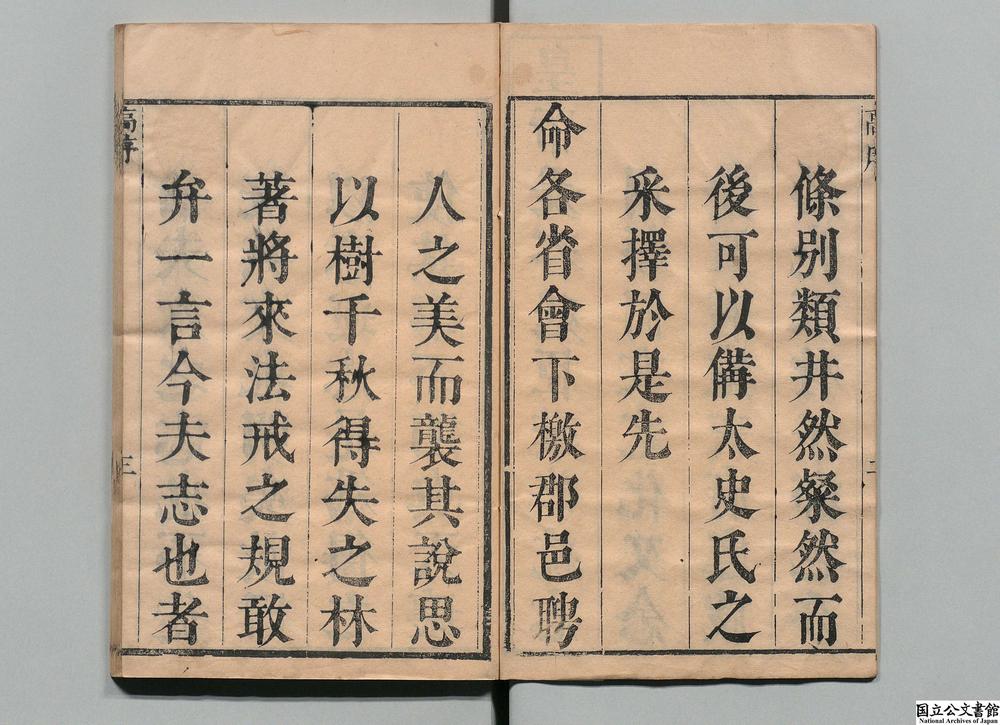 條别類井然粲然而
後可以備太史氏之
采擇於是先
命各省會下檄郡邑聘
人之美而襲其說思
以樹千秋得失之林
著將來法戒之規敢
弁一言今夫志也者
高序
三
国立公文書館
National Archives of Japan